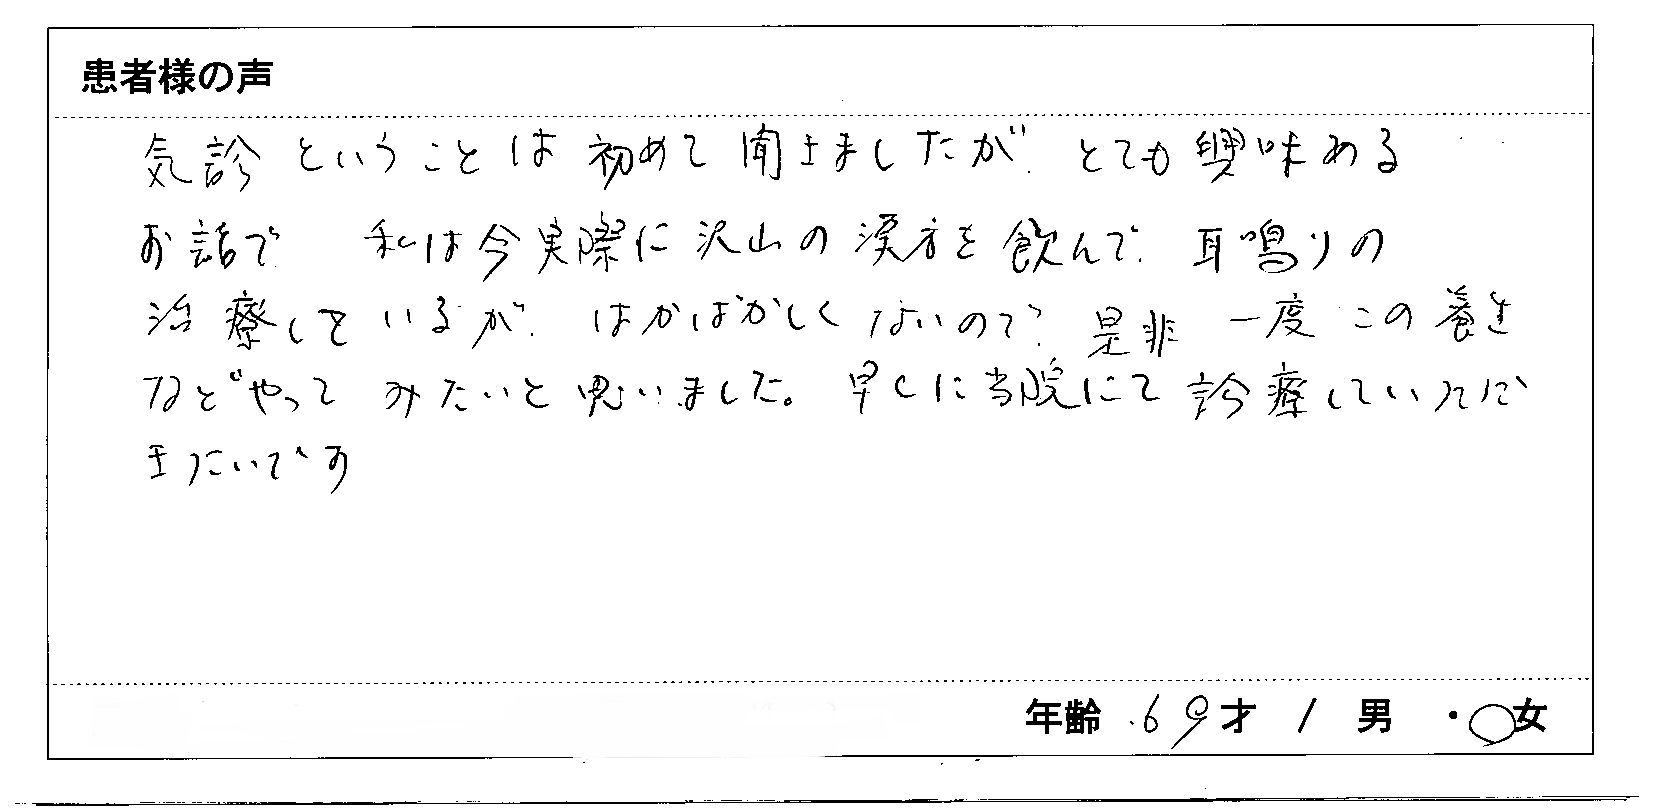 患者様の声
気診ということは初めて聞きましたが、とても興味ある
お話で 私は今実際に沢山の漢方を飲んで、耳鳴りの
治療しているが、はかばかしくないので、是非 一度 この養生
などやって みたいと思いました。早くに当院にて診療していただ
きたいです
年齢 69才 / 男 ・○女